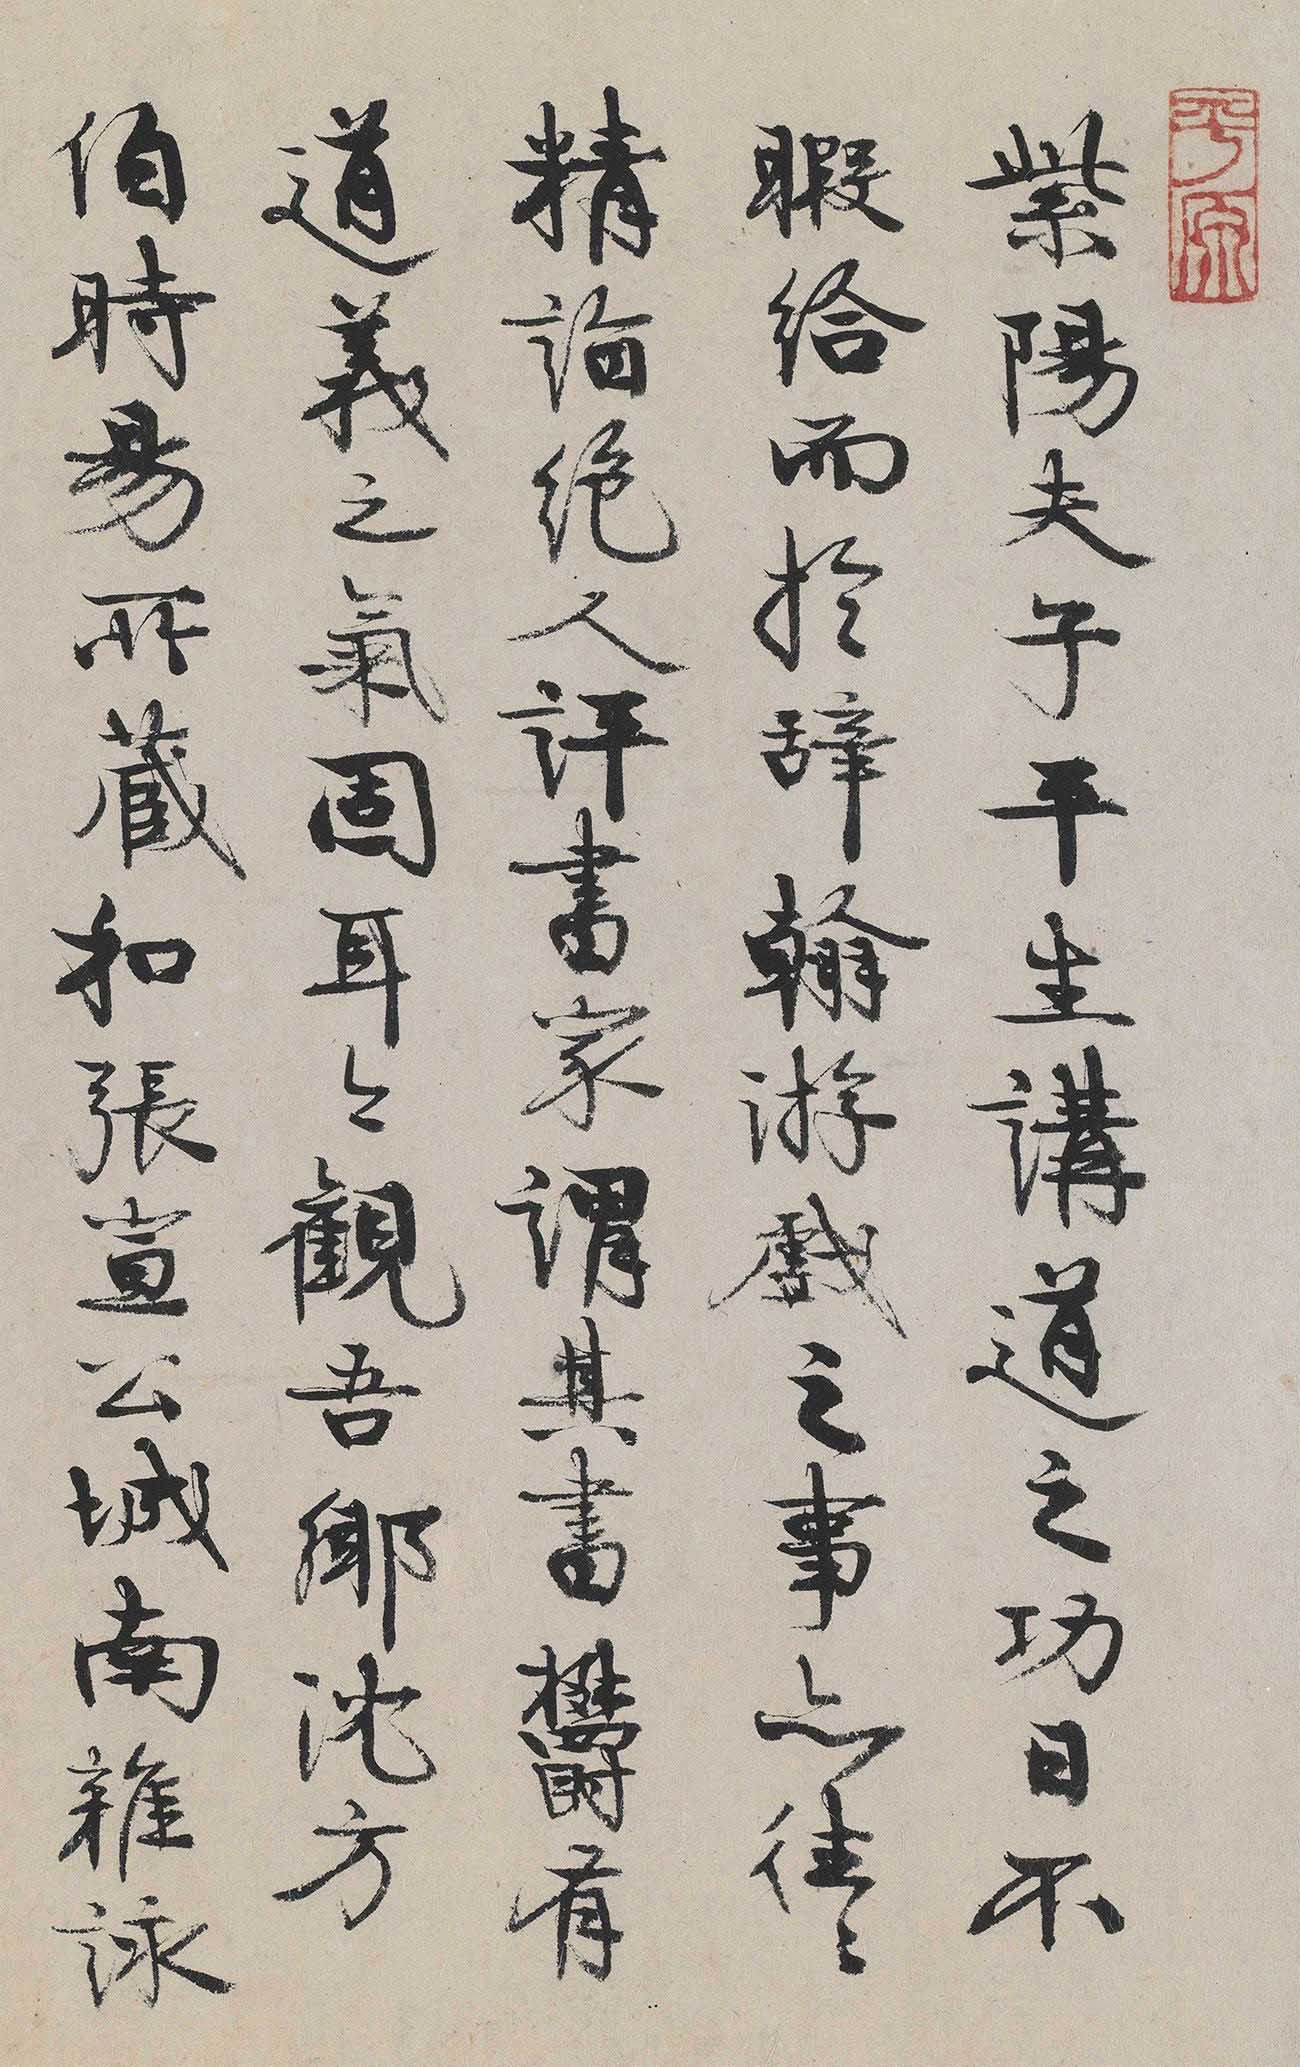 平原
紫陽夫子平生講道之功日不
暇給而於辭翰游戲之事亦往〻
精詣絕人評書家謂其書鬱有
道義之氣固耳今觀吾鄉沈方
伯時昜所藏和張宣公城南雜詠